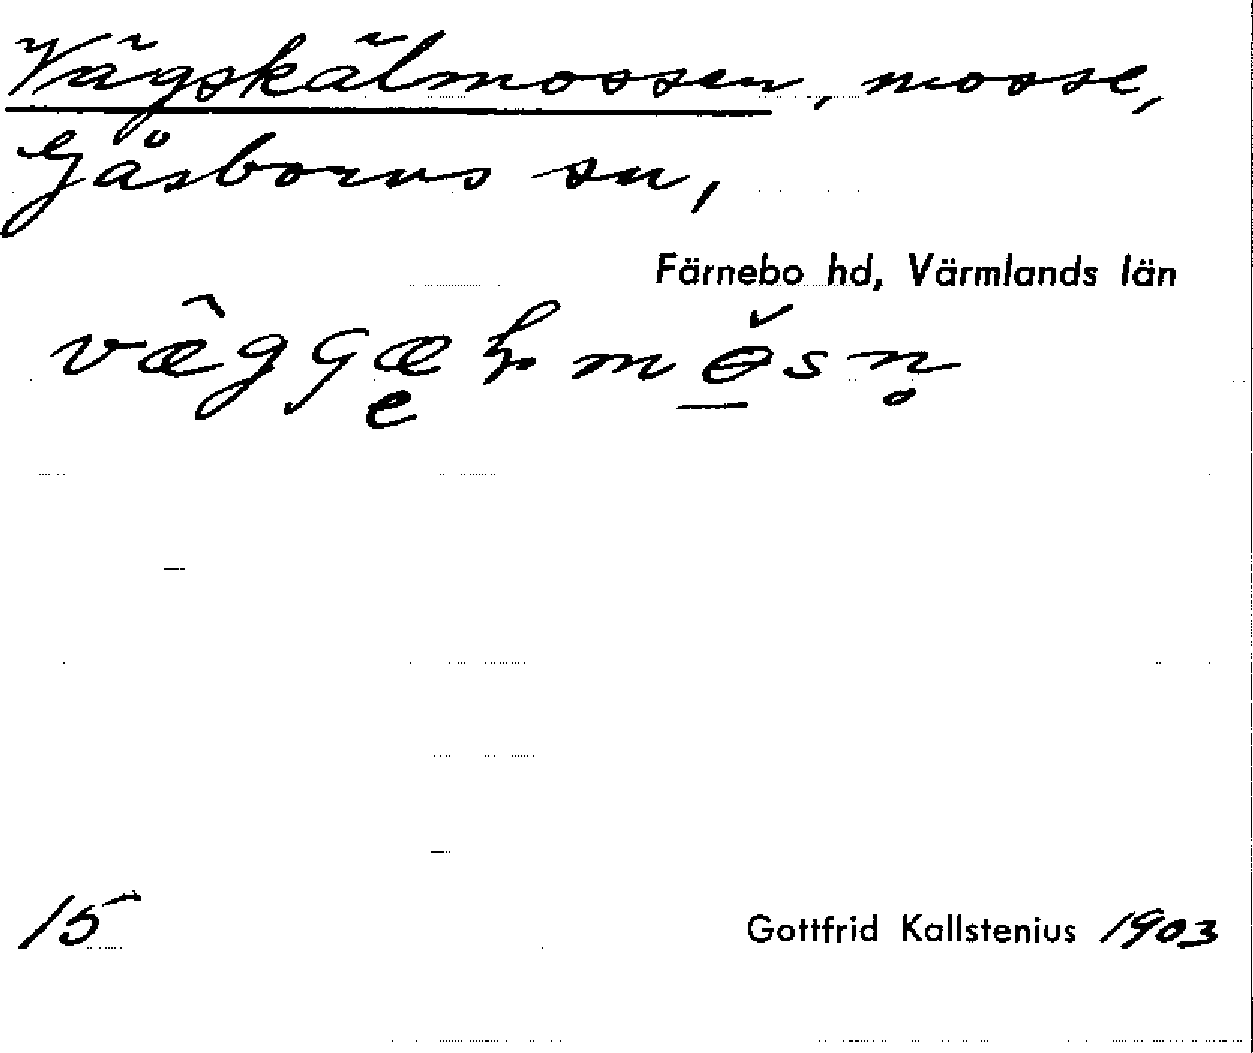 Vägskälmossen, mosse,
Gåsborns sn,
Färnebo hd, Värmlands län
15
Gottfrid Kallstenius 1903